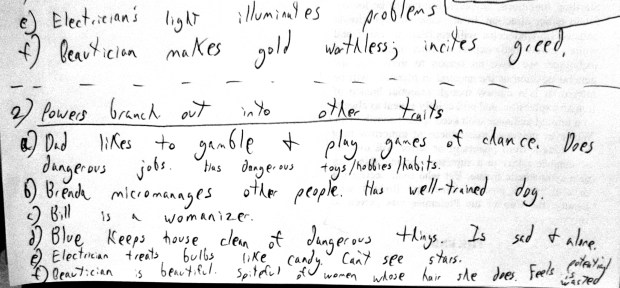 e) Electrician's light illuminates problems
f) Beautician makes gold worthless; incites greed.
2) Powers branch out into other traits
a) Dad likes to gamble + play games of chance. Does
dangerous jobs. Has dangerous toys/hobbies/habits.
b) Brenda micromanages other people. Has well-trained dog.
c) Bill is a womanizer.
d) Blue keeps house clean of dangerous things. Is sad + alone.
e) Electrician treats bulbs like candy. Can't see stars.
f) Beautician is beautiful. Spiteful of women whose hair she does. Feels potential is wasted